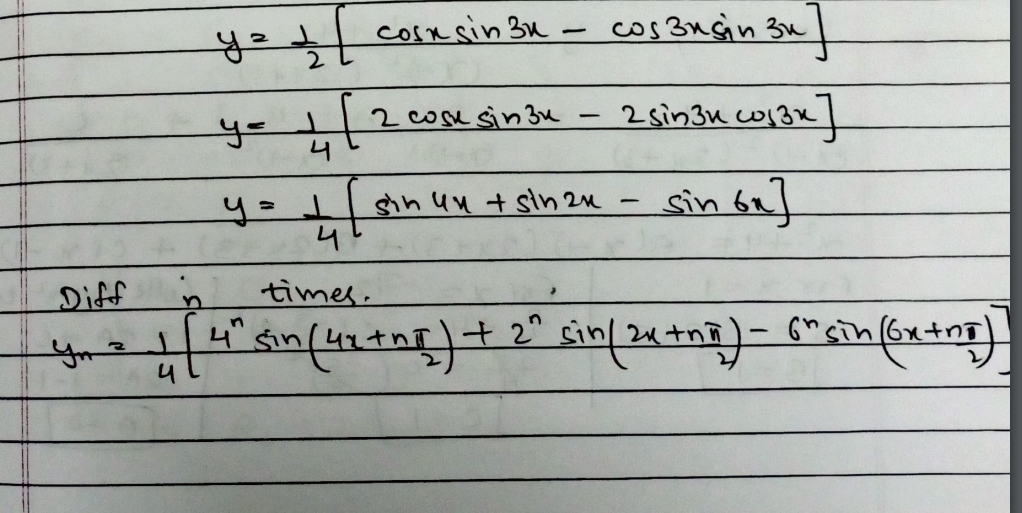 y = 1/2 [ cosx sin 3x - cos 3x sin 3x ]
y = 1/4 [ 2 cosx sin 3x - 2 sin3x cos3x ]
y = 1/4 [ sin 4x + sin 2x - sin 6x ]
Diff n times.
yₙ = 1/4 [ 4ⁿ sin(4x + nπ/2) + 2ⁿ sin(2x + nπ/2) - 6ⁿ sin(6x + nπ/2) ]